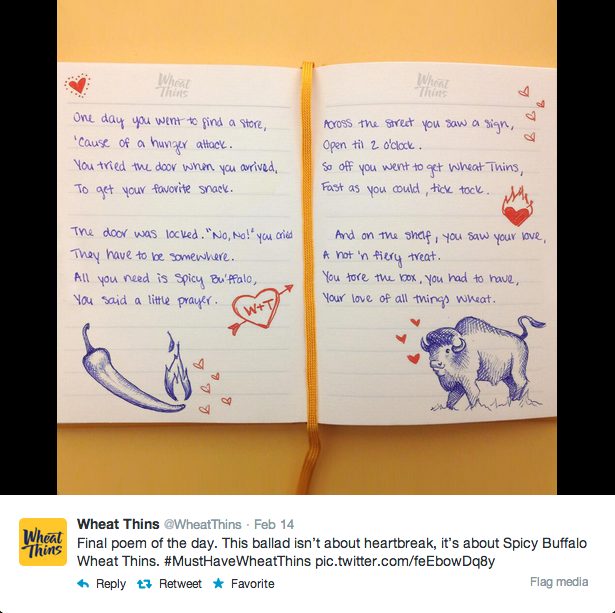 Wheat
Thins
One day you went to find a store,
'Cause of a hunger attack.
You tried the door when you arrived,
To get your favorite snack.
The door was locked. "No, No!" you cried
They have to be somewhere.
All you need is Spicy Buffalo,
You said a little prayer.
W+T
Wheat
Thins
Across the street you saw a sign,
Open til 2 o'clock.
So off you went to get Wheat Thins,
Fast as you could, tick tock.
And on the shelf, you saw your love,
A hot 'n fiery treat.
You tore the box, you had to have,
Your love of all things wheat.
Wheat
Thins
Wheat Thins @WheatThins · Feb 14
Final poem of the day. This ballad isn't about heartbreak, it's about Spicy Buffalo
Wheat Thins. #MustHaveWheatThins pic.twitter.com/feEbowDq8y
Reply Retweet Favorite Flag media